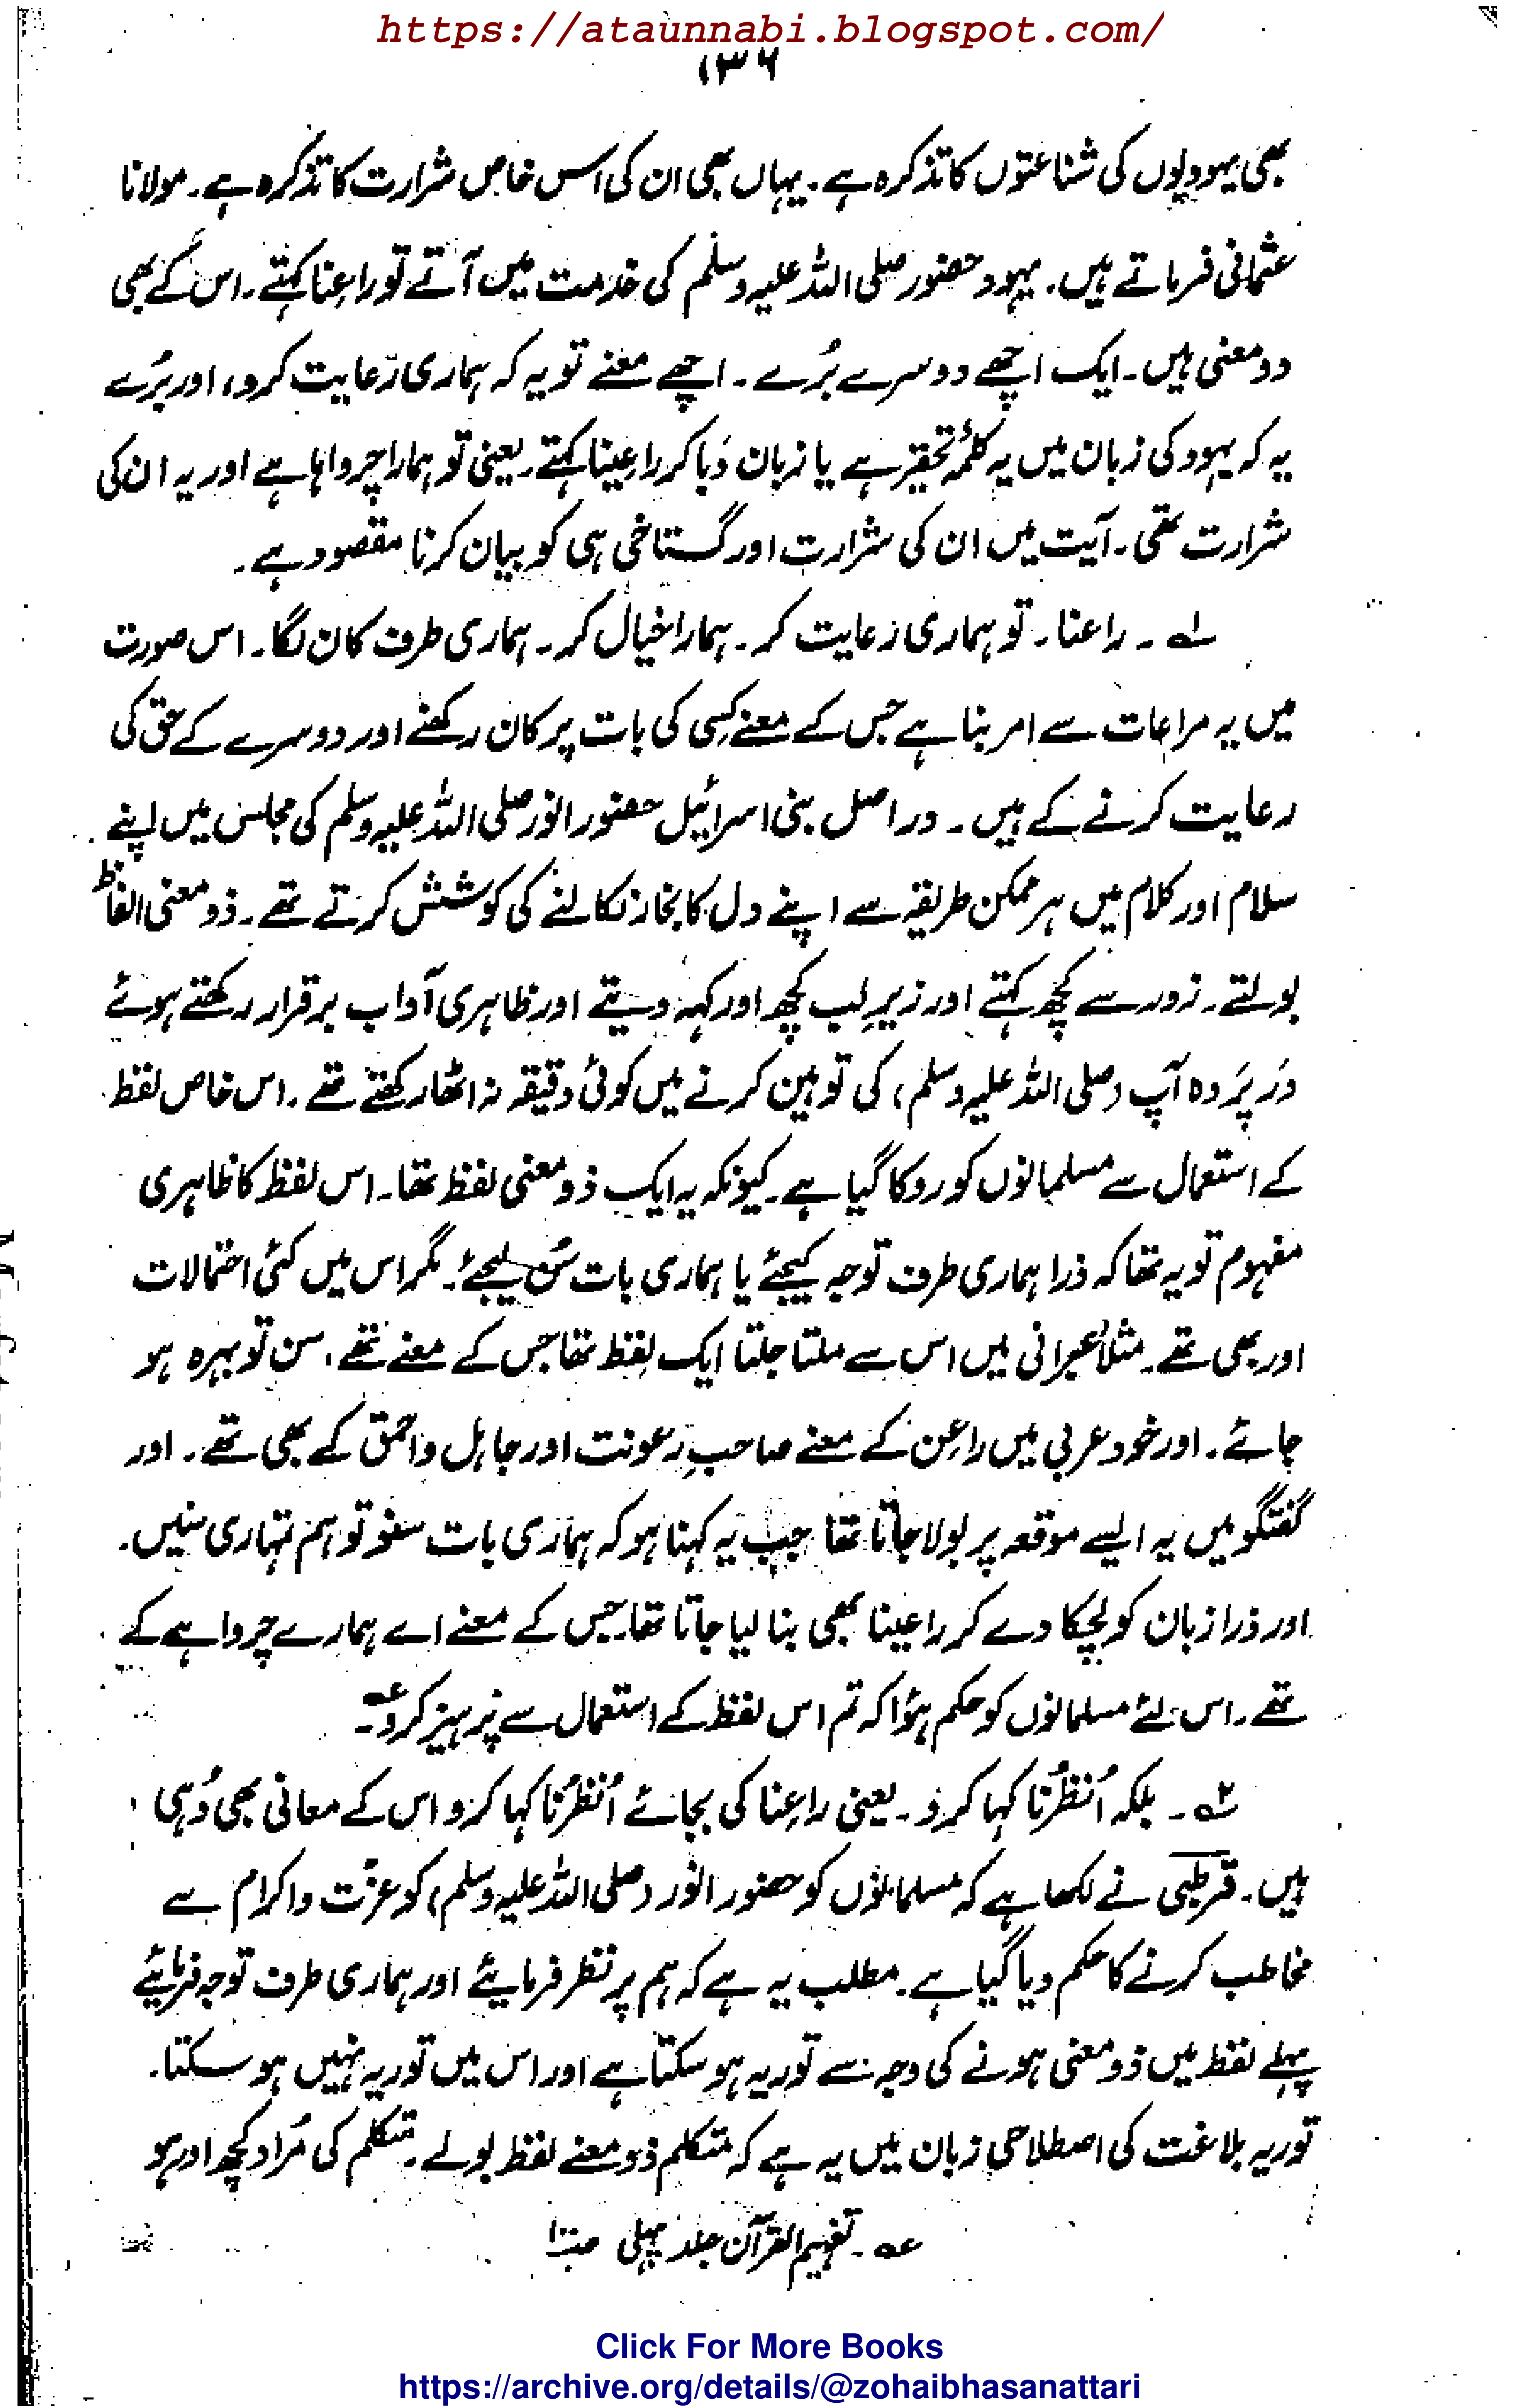 https://ataunnabi.blogspot.com/
۱۳۶
بھی یہودیوں کی شناعتوں کا تذکرہ ہے۔ یہاں بھی ان کی اس خاص شرارت کا تذکرہ ہے۔ مولانا
عثمانی فرماتے ہیں۔ یہود حضور صلی اللہ علیہ وسلم کی خدمت میں آتے تو راعِنا کہتے۔ اس کے بھی
دو معنی ہیں۔ ایک اچھے دوسرے بُرے۔ اچھے معنے تو یہ کہ ہماری رَعایت کرو، اور بُرے
یہ کہ یہود کی زبان میں یہ کلمۂ تحقیر ہے یا زبان دَبا کر راعِینا کہتے۔ یعنی تو ہمارا چرواہا ہے اور یہ ان کی
شرارت تھی۔ آیت میں ان کی شرارت اور گستاخی ہی کو بیان کرنا مقصود ہے۔
۱؎ ۔ راعنا۔ تو ہماری رعایت کر۔ ہمارا خیال کر۔ ہماری طرف کان لگا۔ اس صورت
میں یہ مراعات سے امر بنا ہے جس کے معنے کِسی کی بات پر کان رکھنے اور دوسرے کے حق کی
رعایت کرنے کے ہیں۔ دراصل بنی اسرائیل حضور انور صلی اللہ علیہ وسلم کی مجلس میں اپنے
سلام اور کلام میں ہر ممکن طریقہ سے اپنے دل کا بخار نکالنے کی کوشش کرتے تھے۔ ذو معنی الفاظ
بولتے۔ زور سے کچھ کہتے اور زیرِ لب کچھ اور کہہ دیتے اور ظاہری آداب برقرار رکھتے ہوئے
دَر پَردہ آپ (صلی اللہ علیہ وسلم) کی توہین کرنے میں کوئی دقیقہ نہ اٹھا رکھتے تھے۔ اس خاص لفظ
کے استعمال سے مسلمانوں کو روکا گیا ہے۔ کیونکہ یہ ایک ذو معنی لفظ تھا۔ اس لفظ کا ظاہری
مفہوم تو یہ تھا کہ ذرا ہماری طرف توجہ کیجئے یا ہماری بات سُن لیجئے۔ مگر اس میں کئی احتمالات
اور بھی تھے۔ مثلاً عبرانی میں اس سے ملتا جلتا ایک لفظ تھا جس کے معنے تھے، سن تو بہرہ ہو
جائے۔ اور خود عربی میں راعِن کے معنے صاحبِ رعونت اور جاہل و احمق کے بھی تھے۔ اور
گفتگو میں یہ ایسے موقعہ پر بولا جاتا تھا جب یہ کہنا ہو کہ ہماری بات سنو تو ہم تمہاری سنیں۔
اور ذرا زبان کو لچکا دے کر راعینا بھی بنا لیا جاتا تھا۔ جس کے معنے اے ہمارے چرواہے کے
تھے۔ اس لئے مسلمانوں کو حکم ہؤا کہ تم اس لفظ کے استعمال سے پرہیز کرو عہ۔
۲؎ ۔ بلکہ اُنظُرنا کہا کرو۔ یعنی راعِنا کی بجائے اُنظُرنا کہا کرو اس کے معانی بھی وُہی
ہیں۔ قرطبی نے لکھا ہے کہ مسلمانوں کو حضور انور (صلی اللہ علیہ وسلم) کو عزّت و اکرام سے
مخاطب کرنے کا حکم دیا گیا ہے۔ مطلب یہ ہے کہ ہم پر نظر فرمایئے اور ہماری طرف توجہ فرمایئے
پہلے لفظ میں ذو معنی ہونے کی وجہ سے توریہ ہو سکتا ہے اور اس میں توریہ نہیں ہو سکتا۔
توریہ بلاغت کی اصطلاحی زبان میں یہ ہے کہ متکلم ذو معنے لفظ بولے۔ متکلم کی مُراد کچھ اور ہو
عہ ۔ تفہیم القرآن جلد پہلی
Click For More Books
https://archive.org/details/@zohaibhasanattari